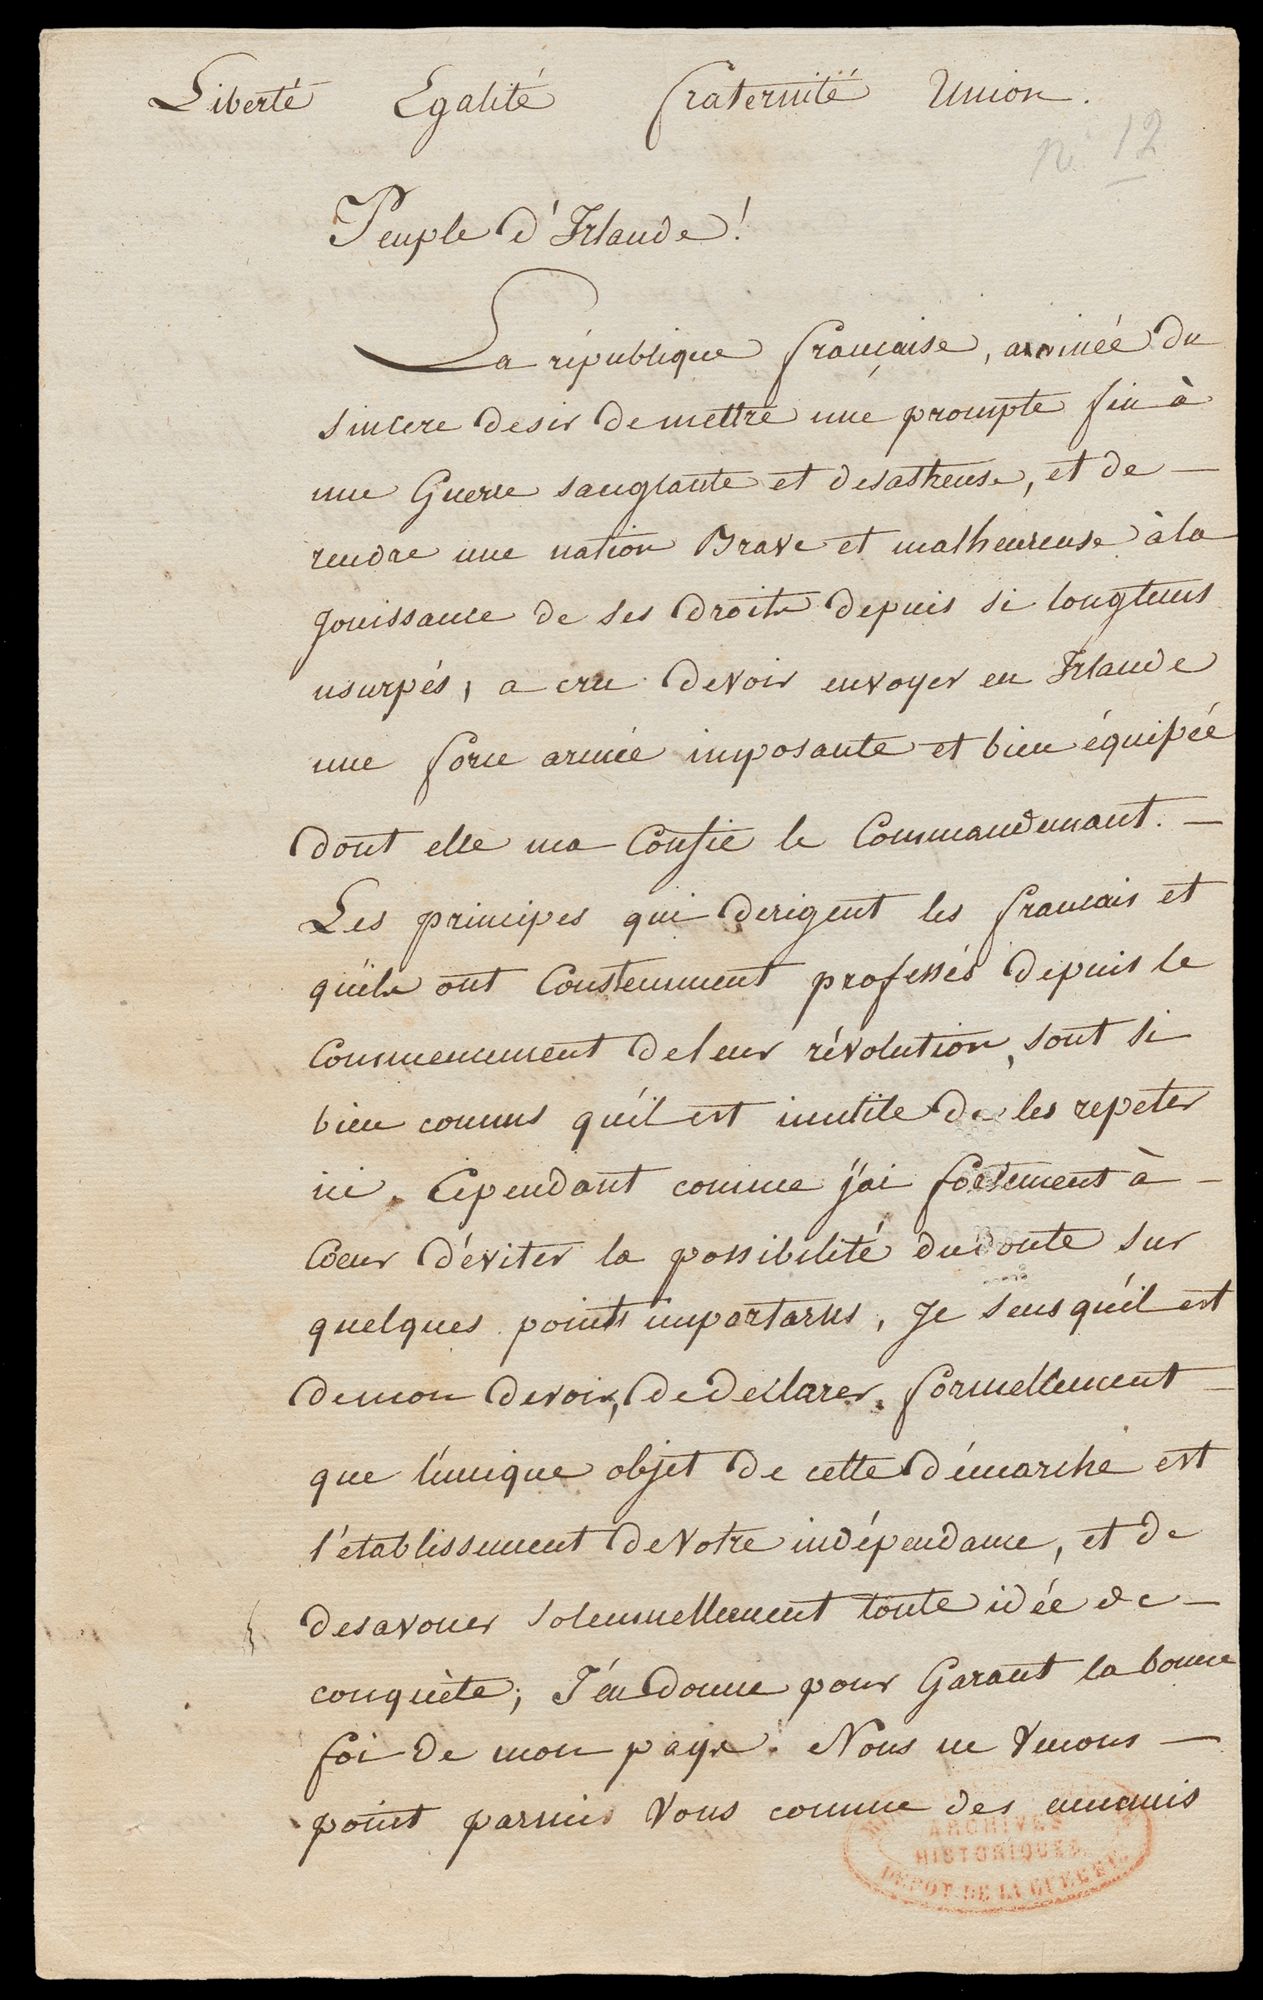 Liberté Egalité fraternité Union.
n. 12
Peuple d'Irlande!
La république française, animée du
sincere desir de mettre une prompte fin à
une Guerre sanglante et desastreuse, et de —
rendre une nation Brave et malheureuse à la
Jouissance de ses droits depuis si longtems
usurpés, a cru devoir envoyer en Irlande
une force armée imposante et bien équipée
dont elle ma Confie le Commandemant. —
Les principes qui derigent les francais et
qu'ils ont Constemment professés depuis le
Commencement de leur révolution, sont si
bien connus qu'il est inutile de les repeter
ici. Cependant comme j'ai fortement à —
Coeur d'éviter la possibilité du doute sur
quelques points importants, Je sens qu'il est
de mon devoir, de declarer, formellement —
que l'unique objet de cette démarche est
l'etablissement de Votre indépendance, et de
desavouer solemnellement toute idée de —
conquète; J'en donne pour Garant la bonne
foi de mon pays. Nous ne Venons —
point parmis Vous comme des ennemis
ARCHIVES
HISTORIQUES
DÉPOT DE LA GUERRE